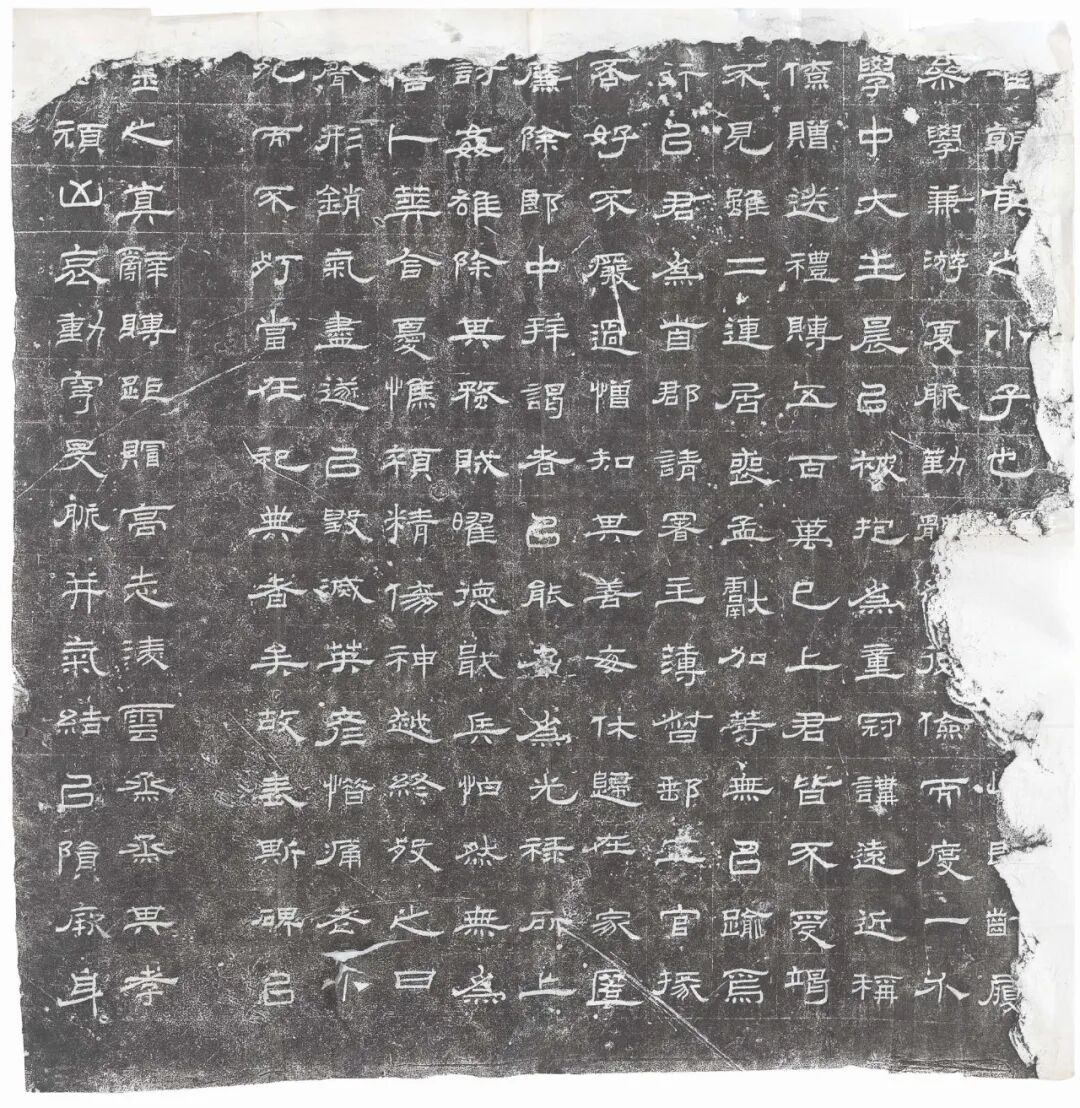 朝侯之小子也齒履
學兼游夏服勤體後儉而度一介
學中大主晨以被抱為童冠講遠近稱
僚贈送禮賻五百萬已上君皆不受竭
不見雖二連居喪孟獻加等無以踰焉
以君為首郡請署主薄督郵五官掾
否好不廢過憎知其善每休歸在家匿
廉除郎中拜謁者以能名為光祿所上
討姦雄除其蝥賊曜德戢兵怕然無為
信仁合憂憔顇精傷神越終歿之日
膂形銷氣盡遂以毀滅英彥惜痛老小
究而不登當在祀典者矣故表斯碑以
靈之真辭賻距賵高志淩雲烝烝其孝
頑凶哀動穹旻脈并氣結以隕厥身